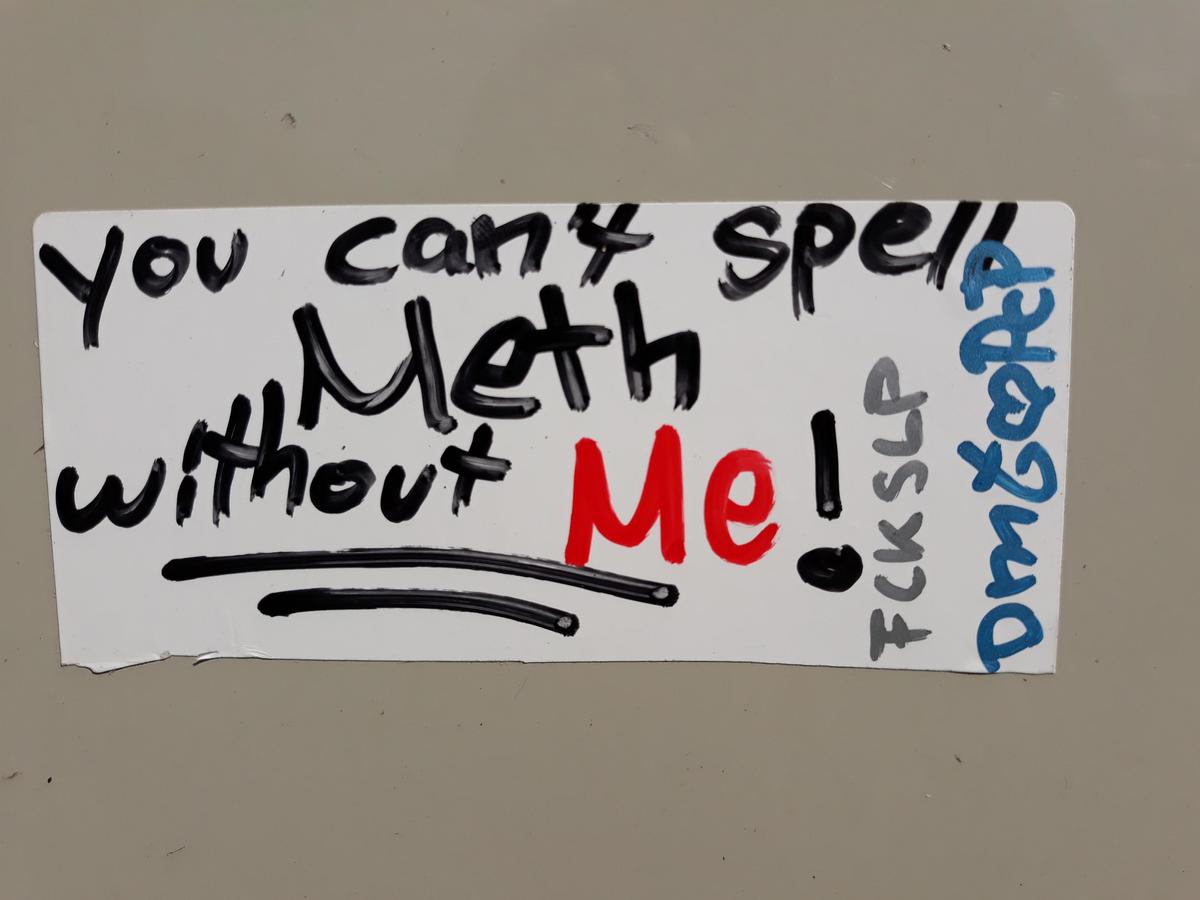 you can't spell
Meth
without Me!
FCKSLP